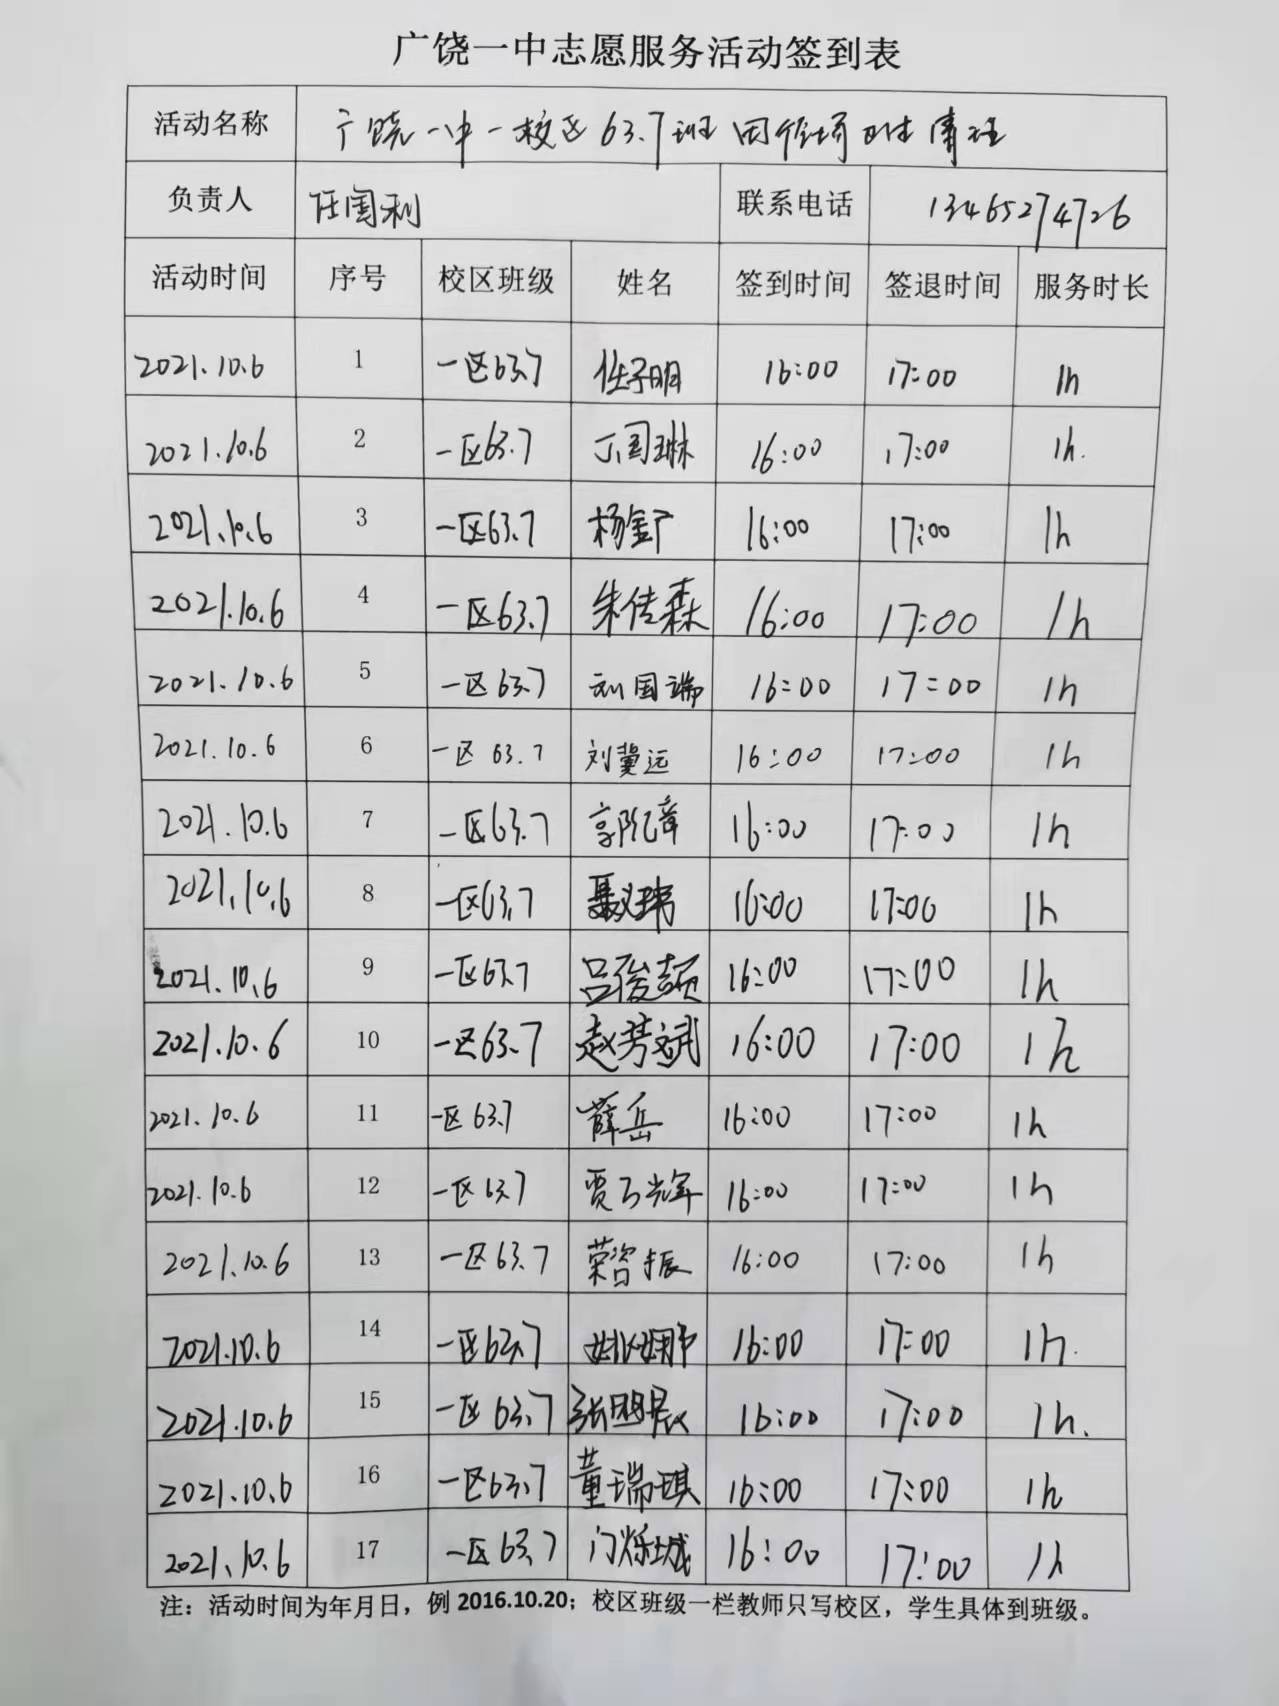 广饶一中志愿服务活动签到表
活动名称 广饶一中一校区63.7班 清理
负责人 任国利 联系电话 13465274726
活动时间 序号 校区班级 姓名 签到时间 签退时间 服务时长
2021.10.6 1 一区63.7 任子明 16:00 17:00 1h
2021.10.6 2 一区63.7 丁国琳 16:00 17:00 1h.
2021.10.6 3 一区63.7 16:00 17:00 1h
2021.10.6 4 一区63.7 朱传森 16:00 17:00 1h
2021.10.6 5 一区63.7 刘国瑞 16:00 17:00 1h
2021.10.6 6 一区 63.7 刘冀远 16:00 17:00 1h
2021.10.6 7 一区63.7 16:00 17:00 1h
2021.10.6 8 一区63.7 聂义玮 16:00 17:00 1h
2021.10.6 9 一区63.7 吕俊颉 16:00 17:00 1h
2021.10.6 10 一区63.7 赵芳斌 16:00 17:00 1h
2021.10.6 11 一区63.7 薛岳 16:00 17:00 1h
2021.10.6 12 一区63.7 16:00 17:00 1h
2021.10.6 13 一区63.7 16:00 17:00 1h
2021.10.6 14 一区63.7 16:00 17:00 1h.
2021.10.6 15 一区63.7 张明晨 16:00 17:00 1h.
2021.10.6 16 一区63.7 董瑞琪 16:00 17:00 1h
2021.10.6 17 一区63.7 门烁城 16:00 17:00 1h
注：活动时间为年月日，例 2016.10.20；校区班级一栏教师只写校区，学生具体到班级。